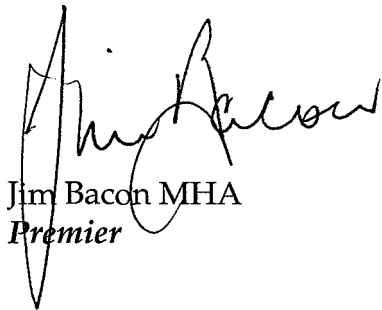 Jim Bacon
Jim Bacon MHA
Premier